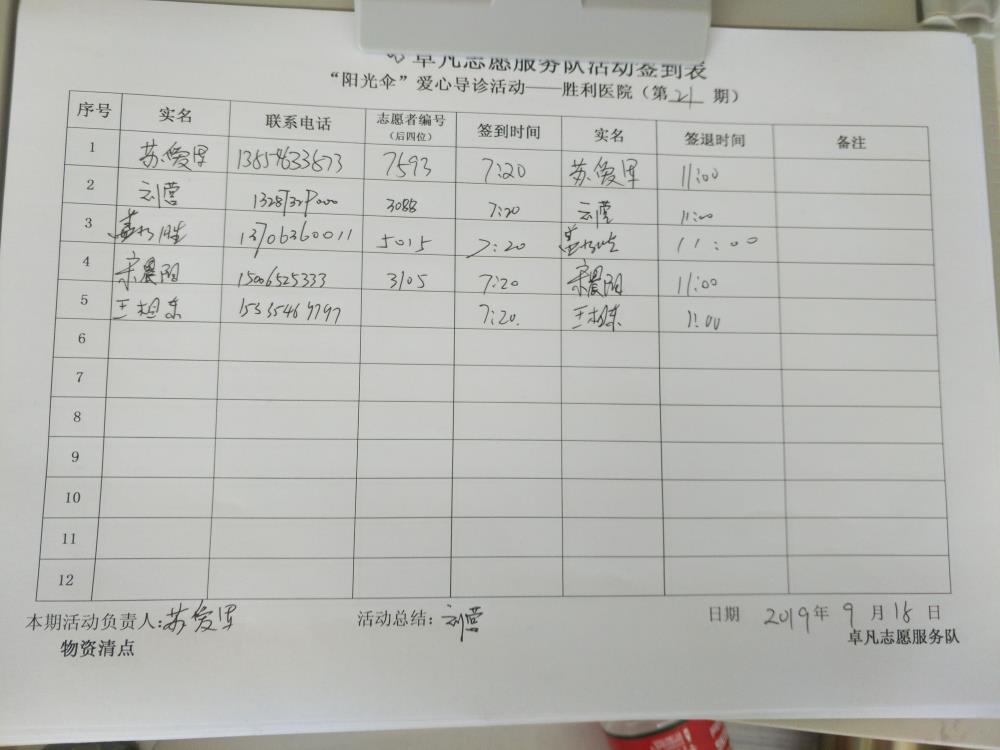 卓凡志愿服务队活动签到表
“阳光伞”爱心导诊活动——胜利医院(第 21 期)
序号 实名 联系电话 志愿者编号(后四位) 签到时间 实名 签退时间 备注
1 苏俊军 13854633873 7593 7:20 苏俊军 11:00
2 刘营 3088 7:20 刘营 11:00
3 13706360011 5015 7:20 11:00
4 宋晨阳 1506525333 3105 7:20 宋晨阳 11:00
5 王相东 7:20 王相东 11:00
6
7
8
9
10
11
12
本期活动负责人:苏俊军 活动总结:刘营 日期 2019年 9 月 18 日
物资清点 卓凡志愿服务队